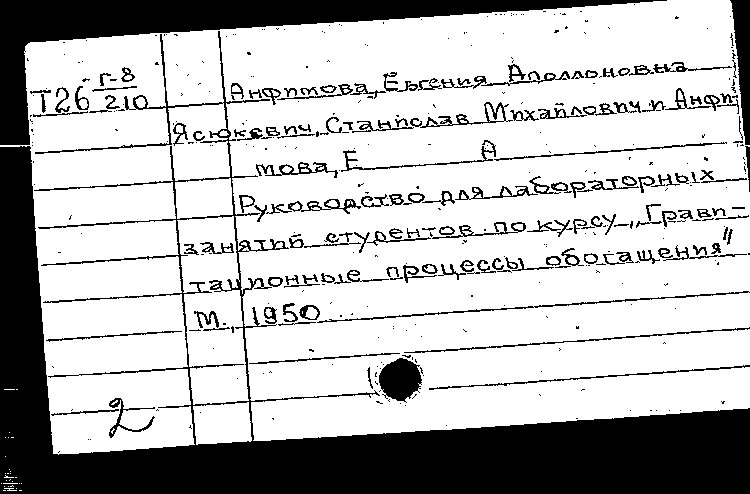 Т26 г-8/210
Анфимова, Евгения Аполлоновна
Ясюкевич, Станислав Михайлович и Анфи-
мова, Е А
Руководство для лабораторных
занятий студентов по курсу „Грави-
тационные процессы обогащения"
М., 1950
2